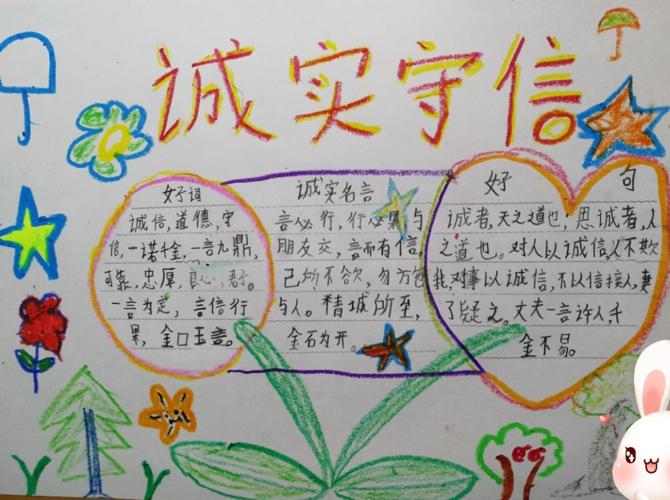 诚实守信
好词
诚信,道德,守
信,一诺千金,一言九鼎,
可靠,忠厚,良心,君子。
一言为定,言信行
果,金口玉言。
诚实名言
言必行,行必果,与
朋友交,言而有信,
己所不欲,勿
与人。精城所至,
金石为开。
好 句
诚者,天之道也;思诚者,人
之道也。对人以诚信,人不欺
我,对事以诚信,
不以信接人,妻
疑之。丈夫一言许人,千
金不易。